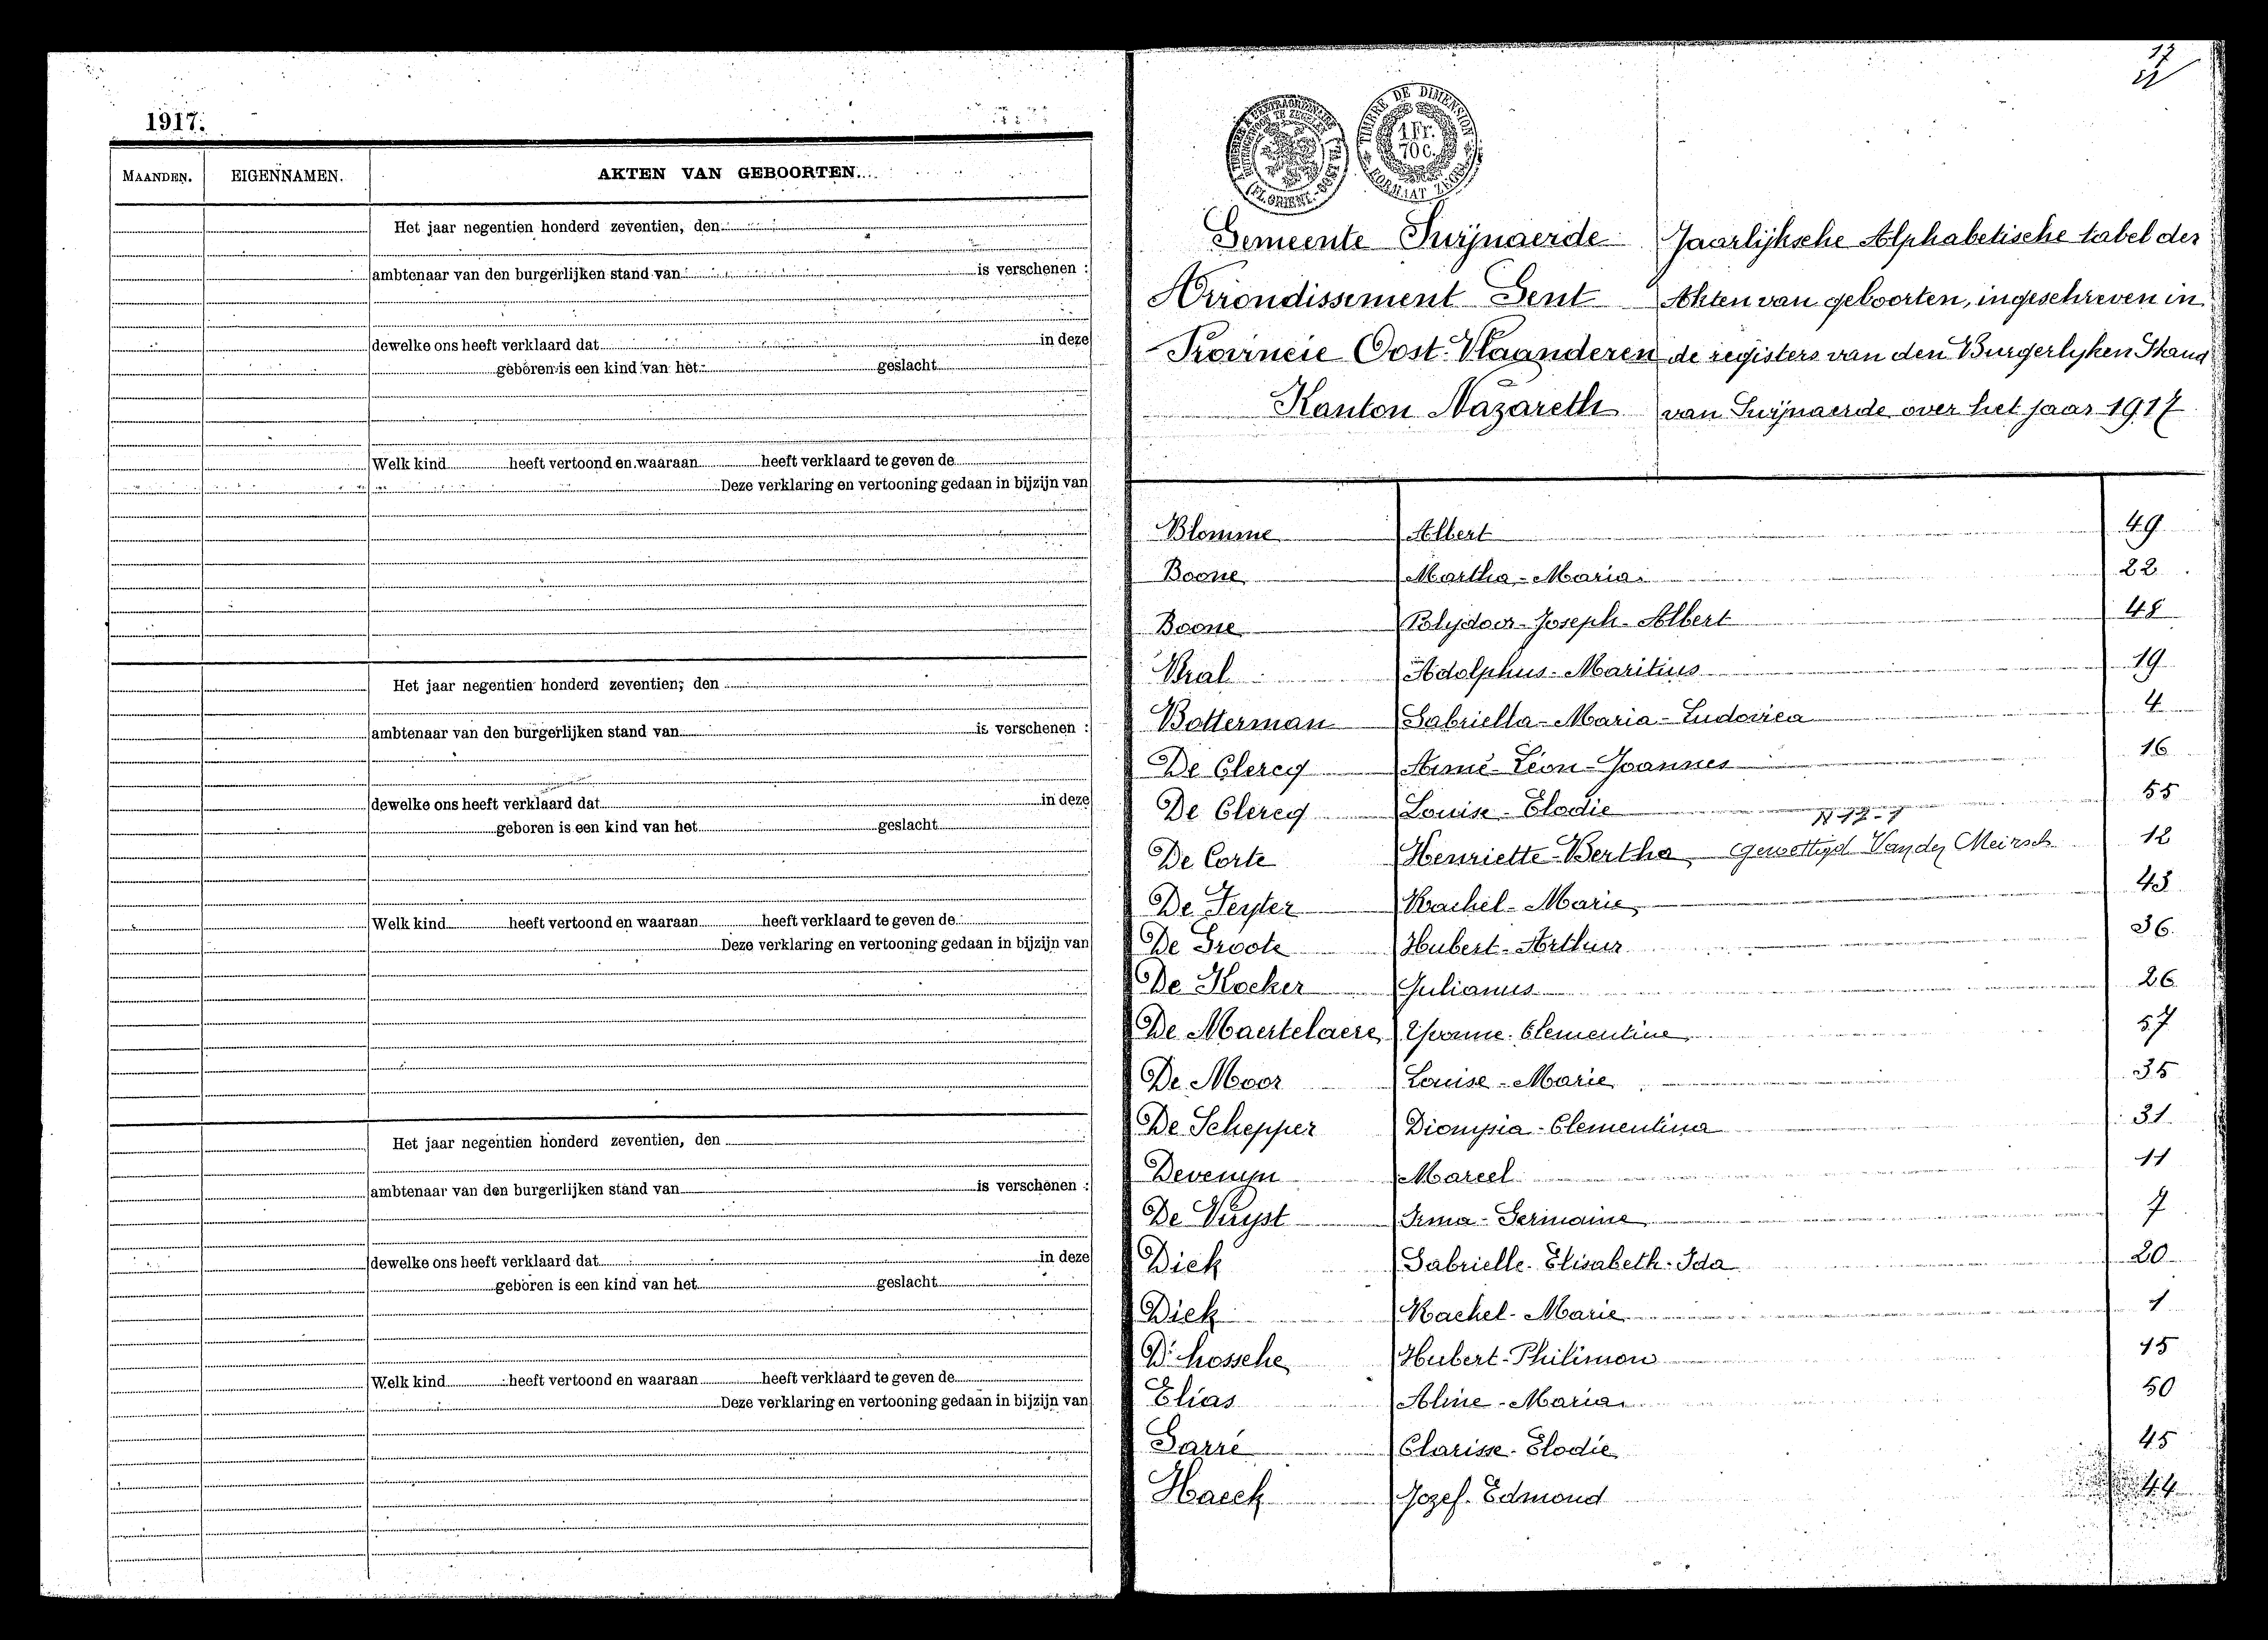 1917.
MAANDEN. EIGENNAMEN. AKTEN VAN GEBOORTEN.
Het jaar negentien honderd zeventien, den
ambtenaar van den burgerlijken stand van is verschenen :
dewelke ons heeft verklaard dat in deze
geboren is een kind van het geslacht
Welk kind heeft vertoond en waaraan heeft verklaard te geven de
Deze verklaring en vertooning gedaan in bijzijn van
Het jaar negentien honderd zeventien, den
ambtenaar van den burgerlijken stand van is verschenen :
dewelke ons heeft verklaard dat in deze
geboren is een kind van het geslacht
Welk kind heeft vertoond en waaraan heeft verklaard te geven de
Deze verklaring en vertooning gedaan in bijzijn van
Het jaar negentien honderd zeventien, den
ambtenaar van den burgerlijken stand van is verschenen :
dewelke ons heeft verklaard dat in deze
geboren is een kind van het geslacht
Welk kind heeft vertoond en waaraan heeft verklaard te geven de
Deze verklaring en vertooning gedaan in bijzijn van
17
TIMBRE DE DIMENSION
1 Fr.
70 c.
FORMAAT ZEGEL
Gemeente Swijnaerde
Arrondissement Gent
Provincie Oost-Vlaanderen
Kanton Nazareth
Jaarlijksche Alphabetische tabel der
Akten van geboorten, ingeschreven in
de registers van den Burgerlyken Stand
van Swijnaerde over het jaar 1917
Blomme Albert 49
Boone Martha-Maria 22
Boone Polydoor-Joseph-Albert 48
Bral Adolphus-Maritius 19
Botterman Gabriella-Maria-Ludovica 4
De Clercq Aimé-Léon-Joannes 16
De Clercq Louise-Elodie 55
De Corte Henriette-Bertha gewettigd Van der Meirsch 12
De Feyter Rachel-Marie 43
De Groote Hubert-Arthur 36
De Kocker Julianus 26
De Maertelaere Yvonne-Clementine 57
De Moor Louise-Marie 35
De Schepper Dionysia-Clementina 31
Devenyn Marcel 11
De Vuyst Irma-Germaine 7
Dick Gabrielle-Elisabeth-Ida 20
Dick Rachel-Marie 1
D'hossche Hubert-Philimon 15
Elias Aline-Maria 50
Garré Clarisse-Elodie 45
Haeck Jozef-Edmond 44